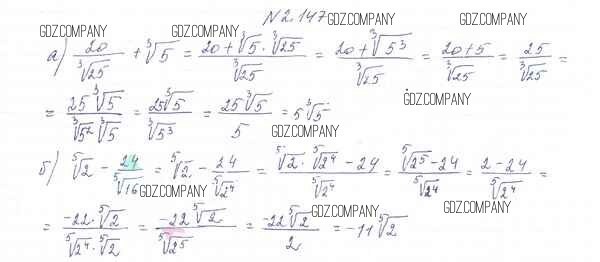 №2.147
GDZ.COMPANY GDZ.COMPANY GDZ.COMPANY GDZ.COMPANY
а) 20/∛25 + ∛5 = (20 + ∛5 · ∛25)/∛25 = (20 + ∛5³)/∛25 = (20+5)/∛25 = 25/∛25 =
= 25∛5/(∛5² ∛5) = 25∛5/∛5³ = 25∛5/5 = 5∛5
GDZ.COMPANY
GDZ.COMPANY
б) ⁵√2 − 24/⁵√16 = ⁵√2 − 24/⁵√2⁴ = (⁵√2 · ⁵√2⁴ − 24)/⁵√2⁴ = (⁵√2⁵ − 24)/⁵√2⁴ = (2−24)/⁵√2⁴ =
GDZ.COMPANY
= −22·⁵√2/(⁵√2⁴ · ⁵√2) = −22 ⁵√2/⁵√2⁵ = −22 ⁵√2/2 = −11 ⁵√2
GDZ.COMPANY GDZ.COMPANY